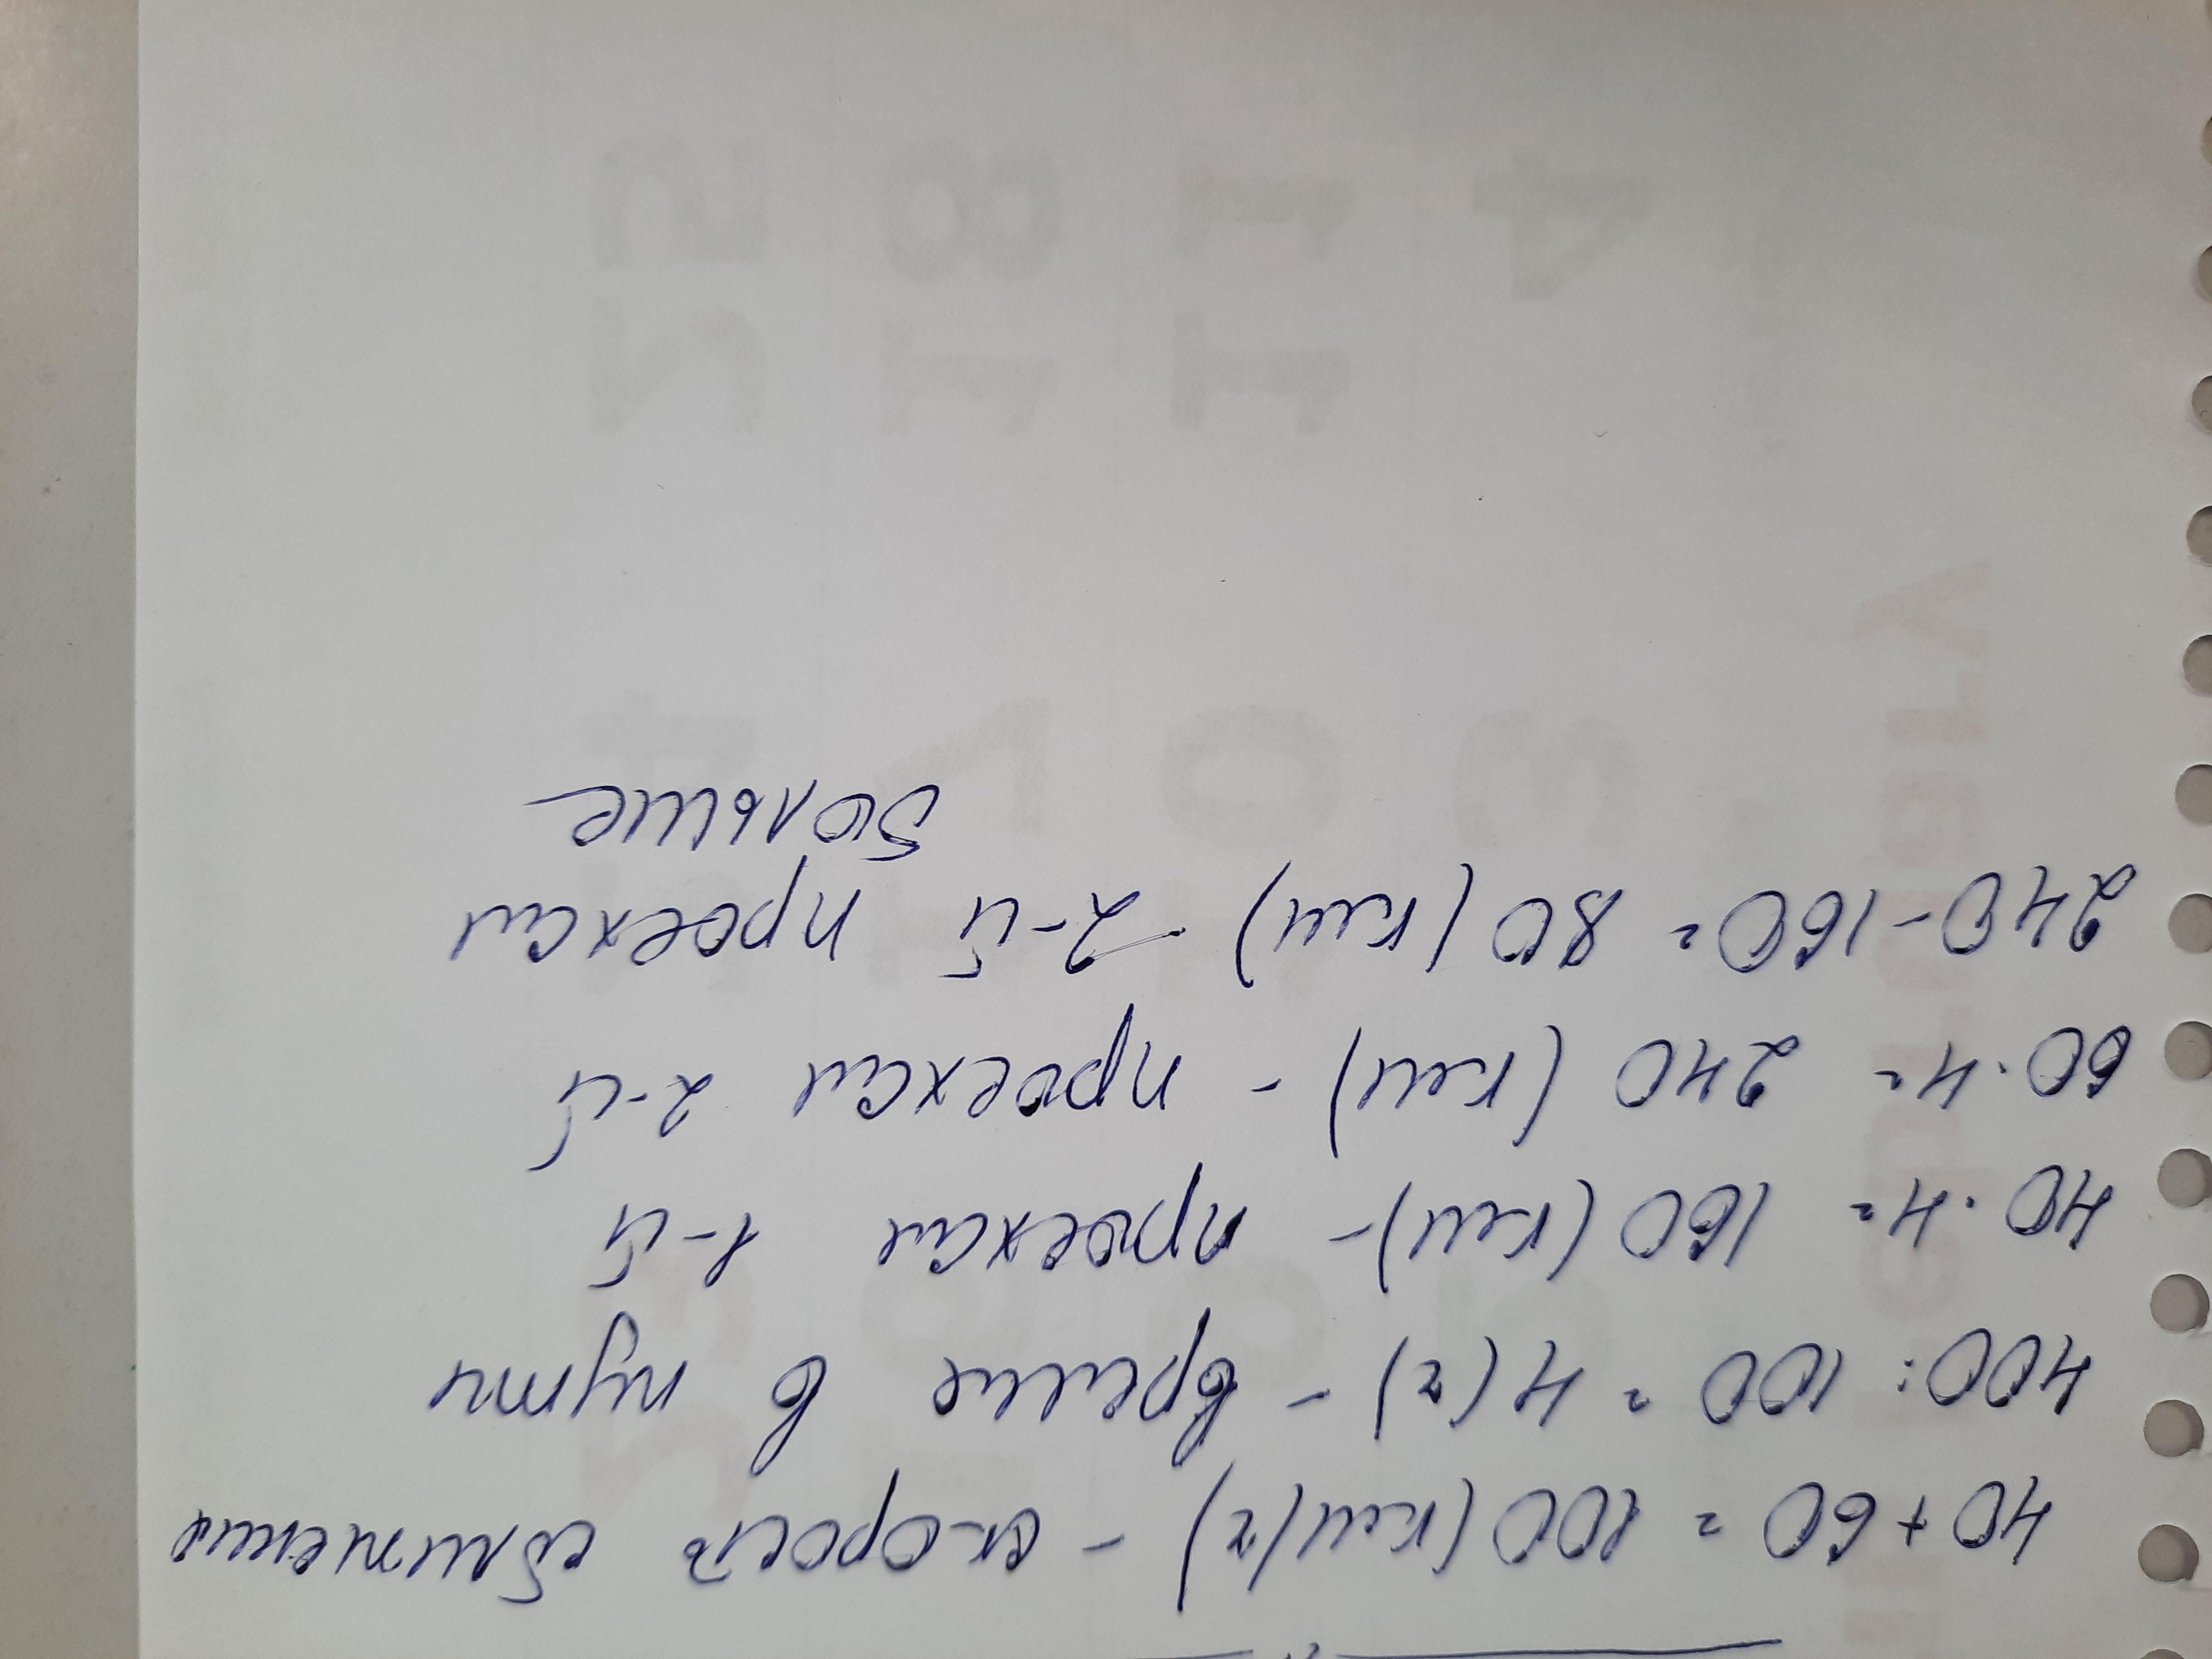 40+60=100(км/ч) - ск-рость сближения
400:100=4(ч) - время в пути
40·4=160(км) - проехал 1-й
60·4=240(км) - проехал 2-й
240-160=80(км) - 2-й проехал
больше